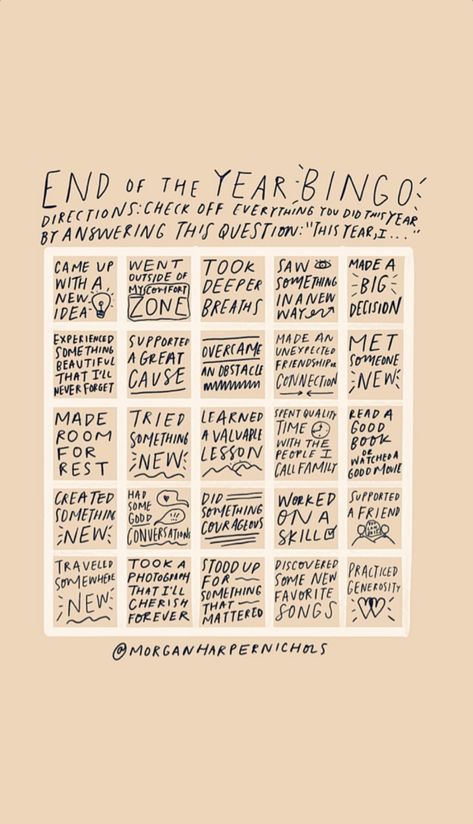 END OF THE YEAR BINGO
DIRECTIONS: CHECK OFF EVERYTHING YOU DID THIS YEAR
BY ANSWERING THIS QUESTION: "THIS YEAR, I..."
CAME UP
WITH A
NEW
IDEA
WENT
OUTSIDE OF
MY COMFORT
ZONE
TOOK
DEEPER
BREATHS
SAW
SOMETHING
IN A NEW
WAY
MADE A
BIG
DECISION
EXPERIENCED
SOMETHING
BEAUTIFUL
THAT I'LL
NEVER FORGET
SUPPORTED
A GREAT
CAUSE
OVERCAME
AN OBSTACLE
MADE AN
UNEXPECTED
FRIENDSHIP OR
CONNECTION
MET
SOMEONE
NEW
MADE
ROOM
FOR
REST
TRIED
SOMETHING
NEW
LEARNED
A VALUABLE
LESSON
SPENT QUALITY
TIME
WITH THE
PEOPLE I
CALL FAMILY
READ A
GOOD
BOOK
OR
WATCHED A
GOOD MOVIE
CREATED
SOMETHING
NEW
HAD
SOME
GOOD
CONVERSATIONS
DID
SOMETHING
COURAGEOUS
WORKED
ON A
SKILL
SUPPORTED
A FRIEND
TRAVELLED
SOMEWHERE
NEW
TOOK A
PHOTOGRAPH
THAT I'LL
CHERISH
FOREVER
STOOD UP
FOR
SOMETHING
THAT
MATTERED
DISCOVERED
SOME NEW
FAVORITE
SONGS
PRACTICED
GENEROSITY
@MORGANHARPERNICHOLS